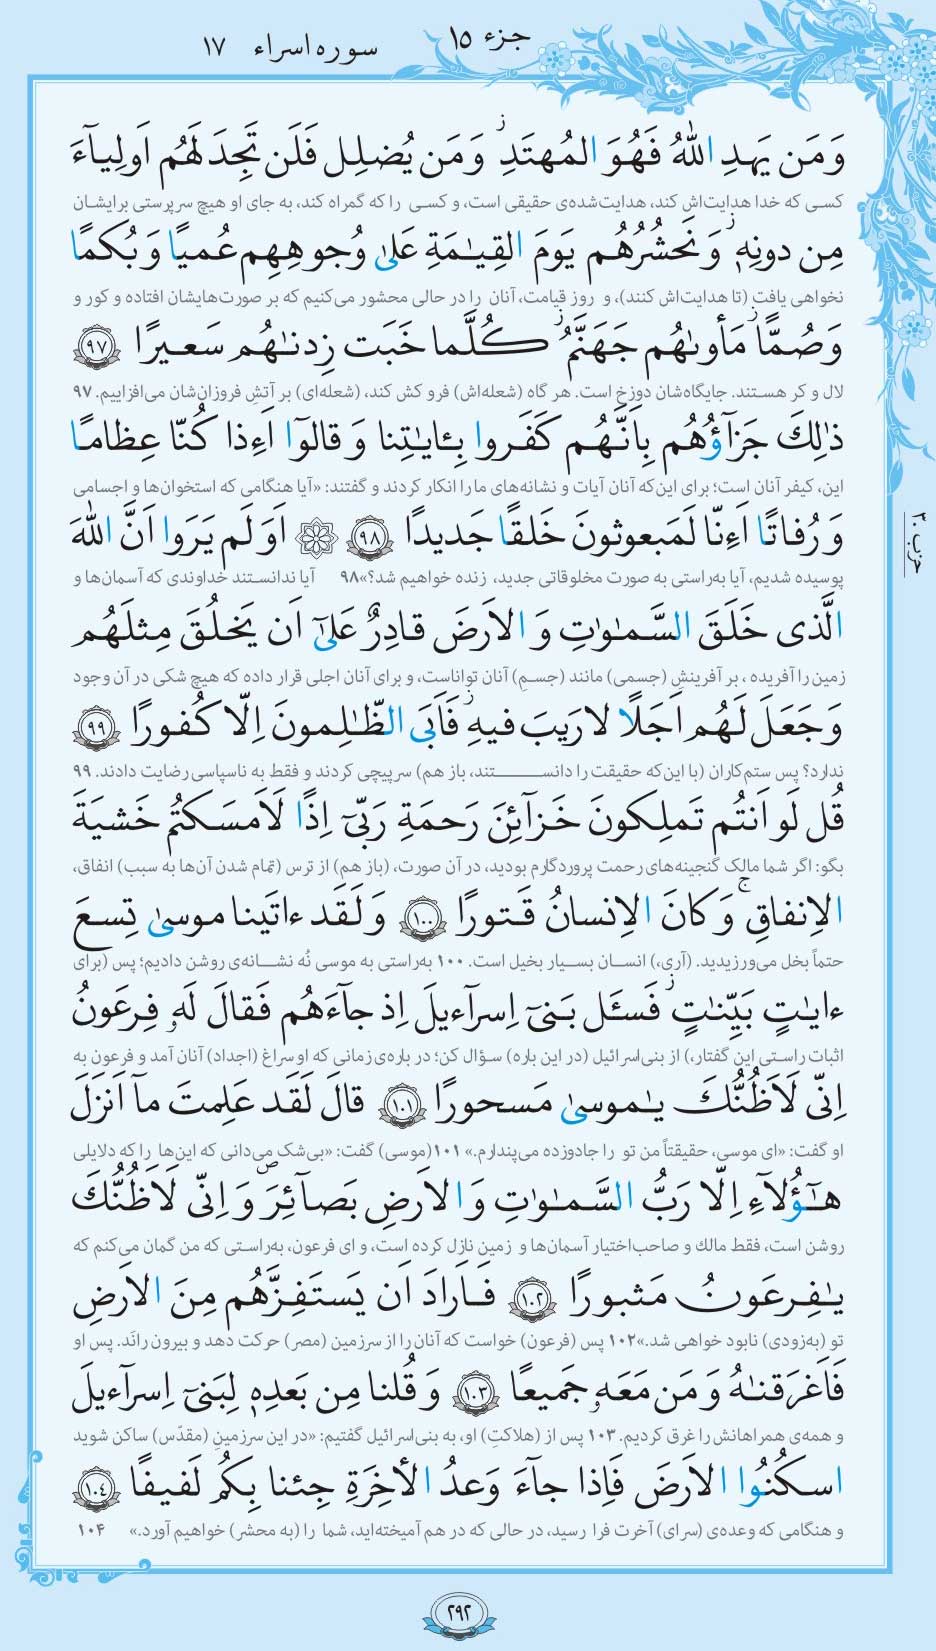 جزء ۱۵
سوره اسراء ۱۷
وَ مَن يَهدِ اللّٰهُ فَهُوَ المُهتَدِ ۖ وَ مَن يُضلِل فَلَن تَجِدَ لَهُم اَولِيآءَ
کسی که خدا هدایت‌اش کند، هدایت‌شده‌ی حقیقی است، و کسی را که گمراه کند، به جای او هیچ سرپرستی برایشان
مِن دونِهٖ ۖ وَ نَحشُرُهُم يَومَ القِيـٰمَةِ عَلىٰ وُجوهِهِم عُميًا وَ بُكمًا
نخواهی یافت (تا هدایت‌اش کنند)، و روز قیامت، آنان را در حالی محشور می‌کنیم که بر صورت‌هایشان افتاده و کور و
وَ صُمًّا ۖ مَأوىٰهُم جَهَنَّمُ ۖ كُلَّما خَبَت زِدنـٰهُم سَعيرًا ﴿٩٧﴾
لال و کر هستند. جایگاه‌شان دوزخ است. هر گاه (شعله‌اش) فرو کش کند، (شعله‌ای) بر آتشِ فروزان‌شان می‌افزاییم. ۹۷
ذٰلِكَ جَزآؤُهُم بِاَنَّهُم كَفَروا بِـٔايـٰتِنا وَ قالوٓا اَءِذا كُنّا عِظامًا
این، کیفر آنان است؛ برای این‌که آنان آیات و نشانه‌های ما را انکار کردند و گفتند: «آیا هنگامی که استخوان‌ها و اجسامی
وَ رُفاتًا اَءِنّا لَمَبعوثونَ خَلقًا جَديدًا ﴿٩٨﴾ ۞ اَوَ لَم يَرَوا اَنَّ اللّٰهَ
پوسیده شدیم، آیا به‌راستی به صورت مخلوقاتی جدید، زنده خواهیم شد؟» ۹۸ آیا ندانستند خداوندی که آسمان‌ها و
الَّذى خَلَقَ السَّمـٰوٰتِ وَ الاَرضَ قادِرٌ عَلىٰٓ اَن يَخلُقَ مِثلَهُم
زمین را آفریده، بر آفرینشِ (جسمی) مانند (جسمِ) آنان تواناست، و برای آنان اجلی قرار داده که هیچ شکی در آن وجود
وَ جَعَلَ لَهُم اَجَلًا لا رَيبَ فيهِ ۖ فَاَبَى الظّـٰلِمونَ اِلّا كُفورًا ﴿٩٩﴾
ندارد؟ پس ستم‌کاران (با این‌که حقیقت را دانستند، باز هم) سرپیچی کردند و فقط به ناسپاسی رضایت دادند. ۹۹
قُل لَو اَنتُم تَملِكونَ خَزآئِنَ رَحمَةِ رَبّىٓ اِذًا لَاَمسَكتُم خَشيَةَ
بگو: اگر شما مالک گنجینه‌های رحمت پروردگارم بودید، در آن صورت، (باز هم) از ترس (تمام شدن آن‌ها به سبب) انفاق،
الاِنفاقِ ۚ وَ كانَ الاِنسانُ قَتورًا ﴿١٠٠﴾ وَ لَقَد ءاتَينا موسىٰ تِسعَ
حتماً بخل می‌ورزیدید. (آری،) انسان بسیار بخیل است. ۱۰۰ به‌راستی به موسی نُه نشانه‌ی روشن دادیم؛ پس (برای
ءايـٰتٍ بَيِّنـٰتٍ ۖ فَسـَٔل بَنىٓ اِسرآءيلَ اِذ جآءَهُم فَقالَ لَهٗ فِرعَونُ
اثبات راستی این گفتار،) از بنی‌اسرائیل (در این باره) سؤال کن؛ در باره‌ی زمانی که او سراغ (اجداد) آنان آمد و فرعون به
اِنّى لَاَظُنُّكَ يـٰموسىٰ مَسحورًا ﴿١٠١﴾ قالَ لَقَد عَلِمتَ مآ اَنزَلَ
او گفت: «ای موسی، حقیقتاً من تو را جادوزده می‌پندارم.» ۱۰۱ (موسی) گفت: «بی‌شک می‌دانی که این‌ها را که دلایلی
هـٰٓؤُلآءِ اِلّا رَبُّ السَّمـٰوٰتِ وَ الاَرضِ بَصآئِرَ ۖ وَ اِنّى لَاَظُنُّكَ
روشن است، فقط مالك و صاحب‌اختیار آسمان‌ها و زمین نازل کرده است، و ای فرعون، به‌راستی که من گمان می‌کنم که
يـٰفِرعَونُ مَثبورًا ﴿١٠٢﴾ فَاَرادَ اَن يَستَفِزَّهُم مِنَ الاَرضِ
تو (به‌زودی) نابود خواهی شد.» ۱۰۲ پس (فرعون) خواست که آنان را از سرزمین (مصر) حرکت دهد و بیرون رانَد. پس او
فَاَغرَقنـٰهُ وَ مَن مَعَهٗ جَميعًا ﴿١٠٣﴾ وَ قُلنا مِن بَعدِهٖ لِبَنىٓ اِسرآءيلَ
و همه‌ی همراهانش را غرق کردیم. ۱۰۳ پس از (هلاکتِ) او، به بنی‌اسرائیل گفتیم: «در این سرزمینِ (مقدّس) ساکن شوید
اسكُنُوا الاَرضَ فَاِذا جآءَ وَعدُ الأخِرَةِ جِئنا بِكُم لَفيفًا ﴿١٠٤﴾
و هنگامی که وعده‌ی (سرای) آخرت فرا رسید، در حالی که در هم آمیخته‌اید، شما را (به محشر) خواهیم آورد.» ۱۰۴
حزب ۳۰
۲۹۲